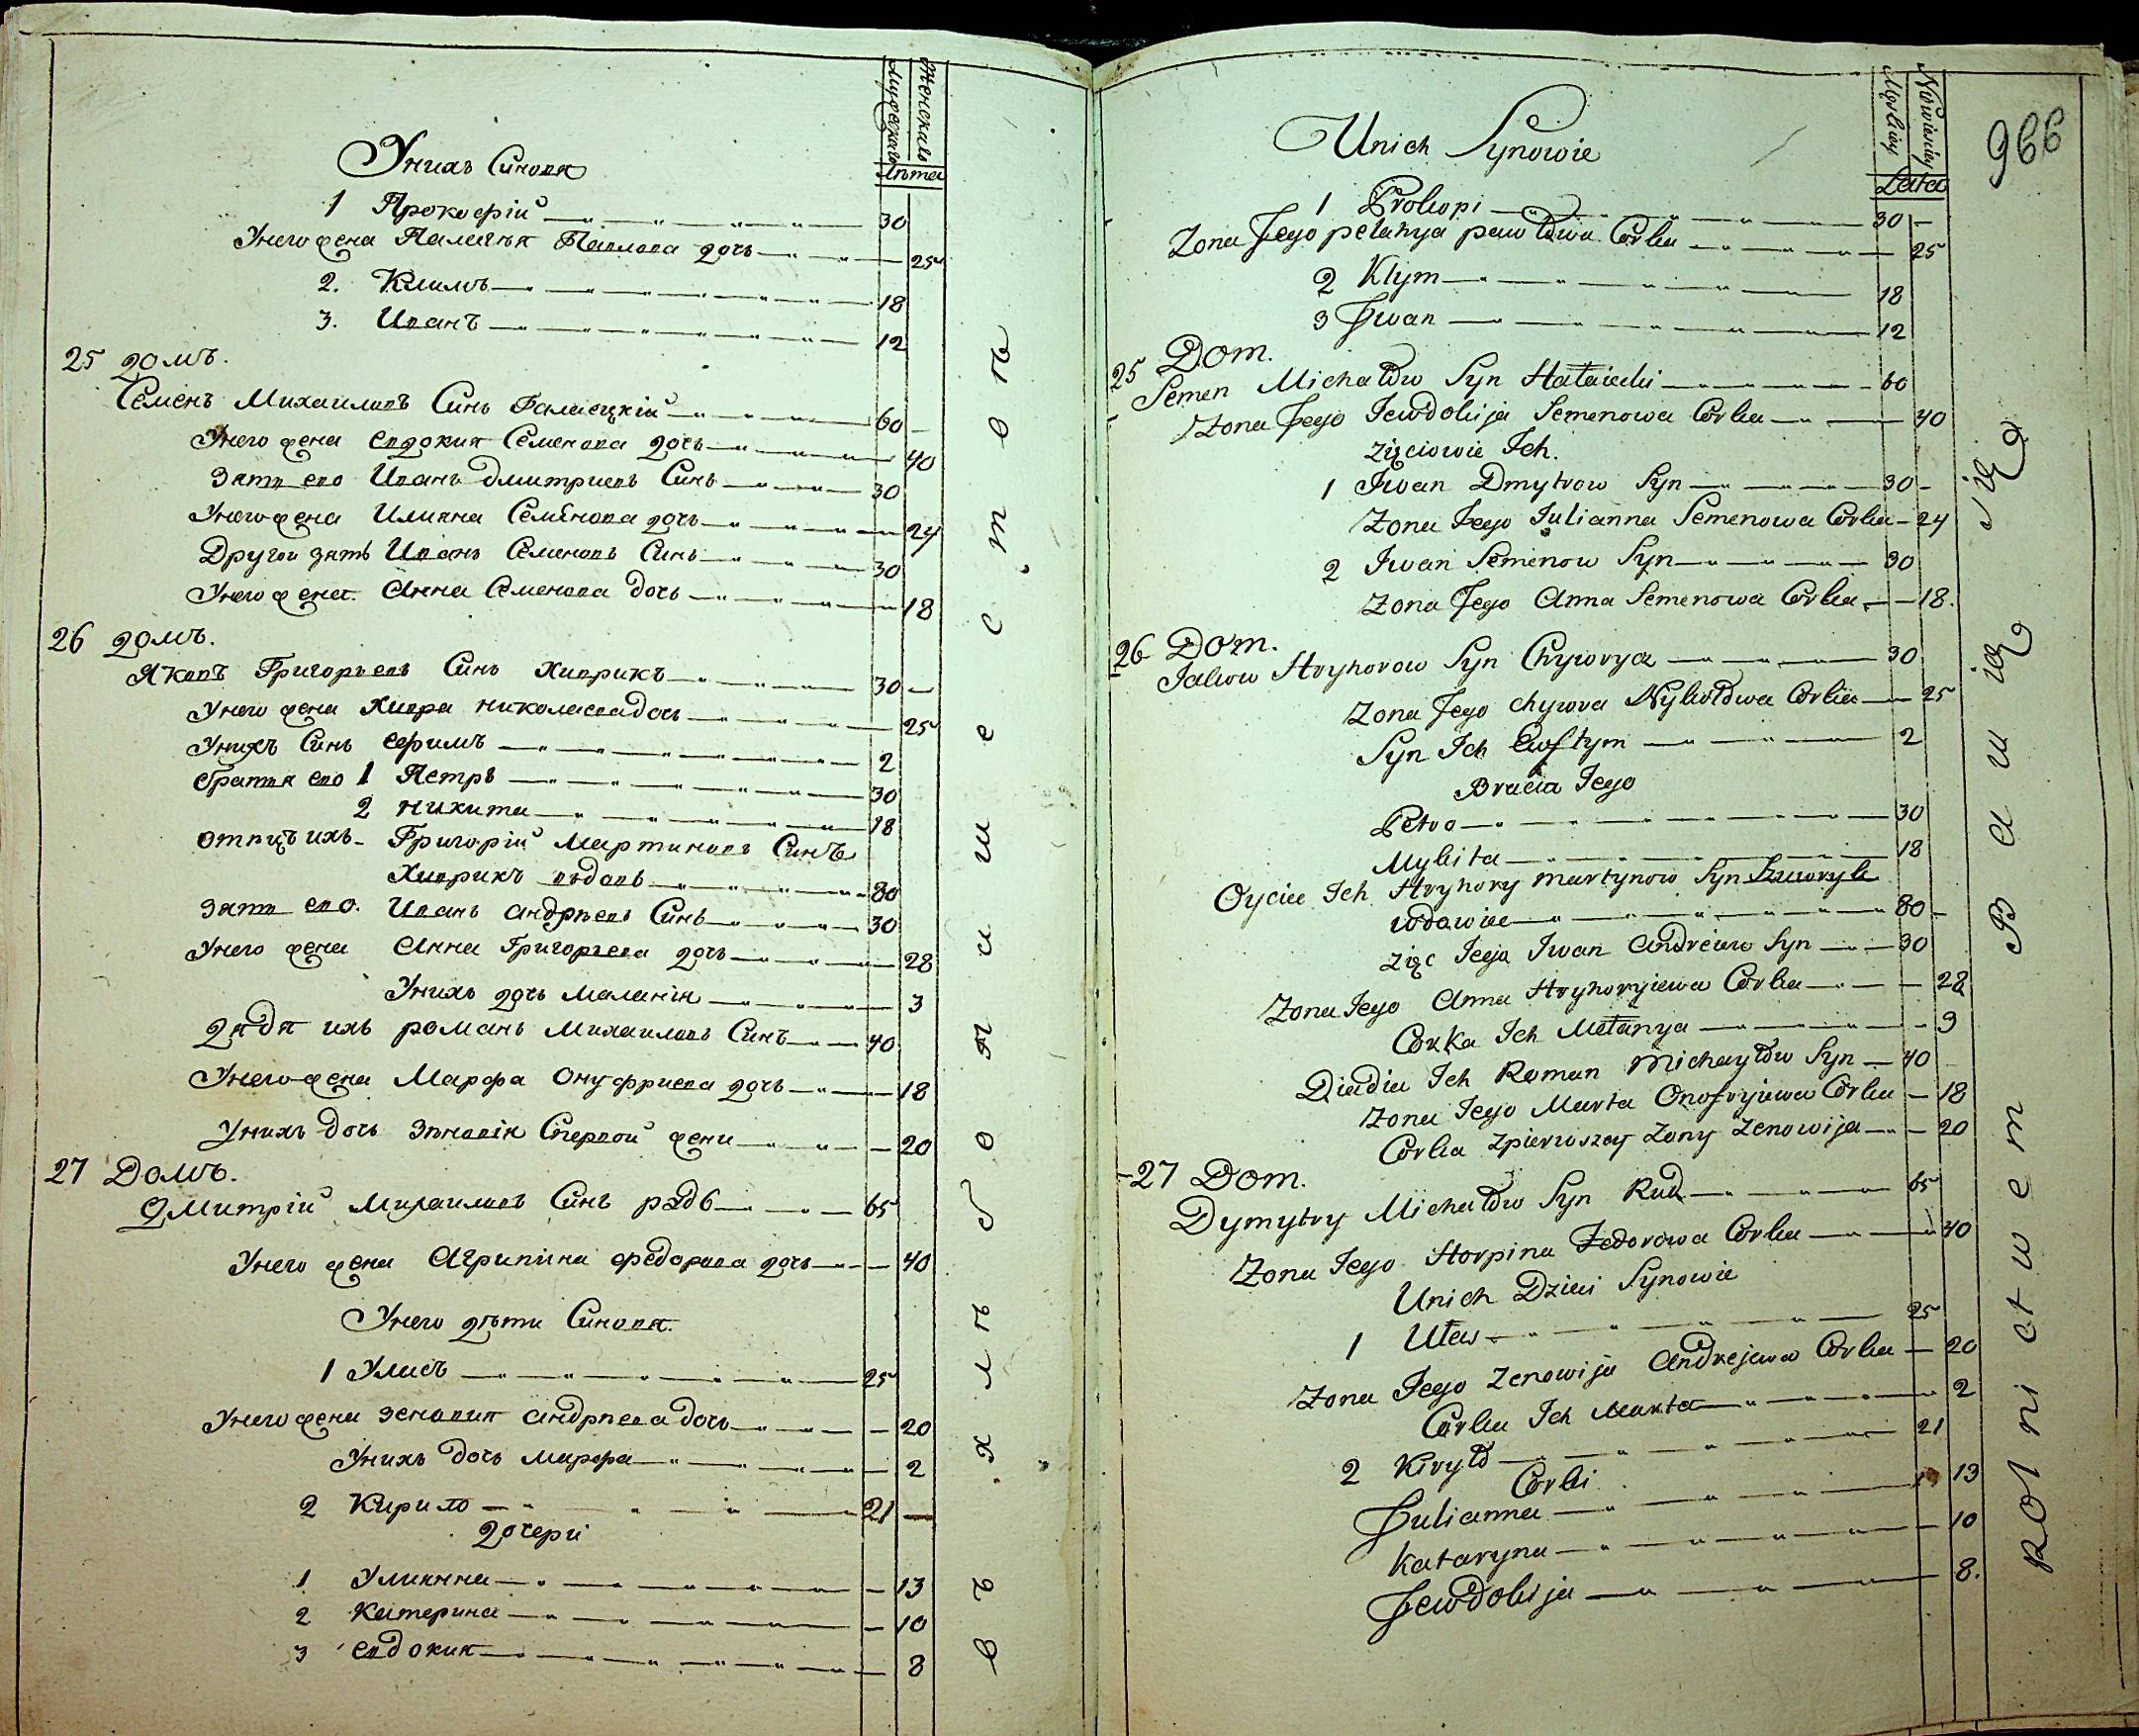 Мужеска Женска
Лѣта
Унихъ Синовя
1 Прокофій 30
Унего жена Палагѣя Павлова дочь 25
2. Климъ 18
3. Иванъ 12
25 домъ.
Семенъ Михаиловъ Синъ Галаецкій 60
Унего жена Евдокия Семенова дочь 40
Зять ево Иванъ Дмитриевъ Синъ 30
Унего жена Илияна Семенова дочь 24
Другои зять Иванъ Семеновъ Синъ 30
Унего жена Анна Семенова дочь 18
26 домъ.
Яковъ Григорьевъ Синъ Хиврикъ 30
Унего жена Хивра Николаева дочь 25
Унихъ Синъ Ефимъ 2
братья ево 1 Петръ 30
2 Никита 18
отпцъ ихъ Григорій Мартиновъ Синъ
Хиврикъ вѣдовъ 80
Зять ево Иванъ Андрѣевъ Синъ 30
Унего жена Анна Григорьева дочь 28
Унихъ дочь Маланія 3
дядя ихъ Романъ Михаиловъ Синъ 40
Унего жена Марфа Онуфриева дочь 18
Унихъ дочь Зѣновія Спервой жени 20
27 Домъ.
Дмитрій Михаиловъ Синъ 65
Унего жена Агрипина Федорова дочь 40
Унего дѣти Синовя.
1 Уласъ 25
Унего жена Зеновия Андрѣева дочь 20
Унихъ дочь Марфа 2
2 Кирило 21
дочері
1 Улиянна 13
2 Катерина 10
3 Евдокия 8
въ хлѣбопашествѣ
966
Lata
Unich Synowie
1 Prokopi 30
Zona Jego pelahya pawłowa Corka 25
2 Klym 18
3 Jwan 12
25 Dom.
Semen Michałow Syn Hałaiecki 60
Zona Jego Jewdokija Semenowa Corka 40
Zięciowie Ich.
1 Jwan Dmytrow Syn 30
Zona Jego Julianna Semenowa Corka 24
2 Jwan Semenow Syn 30
Zona Jego Anna Semenowa Corka 18.
26 Dom.
Jakow Hryhorow Syn Chywryk 30
Zona Jego Chywra Nykołowa Corka 25
Syn Ich Ewftym 2
Bracia Jego
Petro 30
Mykita 18
Oyciec Ich Hryhory martynow Syn
wdowiec 80
zięc Jego Iwan Andreiew Syn 30
Zona Jego Anna Hryhoryjewa Corka 28
Corka Ich Mełanya 3
Diadia Ich Roman Michayłow Syn 40
Zona Jego Marta Onofryjewa Corka 18
Corka zpierwszey Zony Zenowija 20
27 Dom.
Dymytry Michałow Syn Rud 65
Zona Jego Horpina Fedorowa Corka 40
Unich Dzieci Synowie
1 Ułas 25
Zona Jego Zenowija Andrejewa Corka 20
Corka Ich Marta 2
2 Kiryło 21
Corki
Julianna 13
Kataryna 10
Jewdokija 8.
Rolnictwem Bawią się